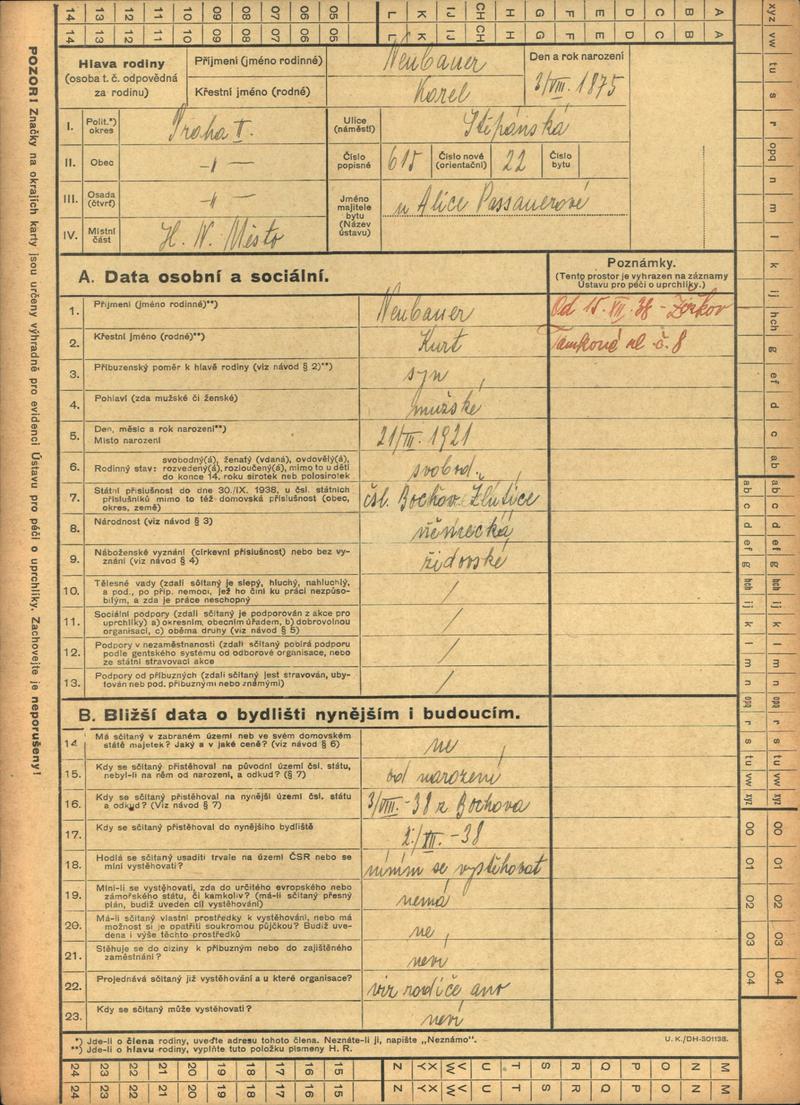 14 13 12 11 10 09 08 07 06 05 L K IJ CH H G F E D C B A
14 13 12 11 10 09 08 07 06 05 L K IJ CH H G F E D C B A
POZOR! Značky na okrajích karty jsou určeny výhradně pro evidenci Ústavu pro péči o uprchlíky. Zachovejte je neporušeny!
Hlava rodiny
(osoba t. č. odpovědná
za rodinu)
Příjmení (jméno rodinné)
Neubauer
Křestní jméno (rodné)
Karel
Den a rok narození
3/VIII. 1875
I. Polit.*) okres
Praha II.
Ulice (náměstí)
Štěpánská
II. Obec
-"-
Číslo popisné
615
Číslo nové (orientační)
22
Číslo bytu
III. Osada (čtvrť)
-"-
Jméno majitele bytu (Název ústavu)
u Alice Passauerové
IV. Místní část
H. N. Město
A. Data osobní a sociální.
Poznámky.
(Tento prostor je vyhrazen na záznamy
Ústavu pro péči o uprchlíky.)
1. Příjmení (jméno rodinné)**)
Neubauer
Od 15. VII. 38 - Žižkov
2. Křestní jméno (rodné)**)
Kurt
nl. č. 8
3. Příbuzenský poměr k hlavě rodiny (viz návod § 2)**)
syn
4. Pohlaví (zda mužské či ženské)
mužské
5. Den, měsíc a rok narození**)
Místo narození
21/III. 1921
6. Rodinný stav: svobodný(á), ženatý (vdaná), ovdovělý(á),
rozvedený(á), rozloučený(á), mimo to u dětí
do konce 14. roku sirotek neb polosirotek
svobod.
7. Státní příslušnost do dne 30./IX. 1938, u čsl. státních
příslušníků mimo to též domovská příslušnost (obec,
okres, země)
čsl. Bochov. Žlutice
8. Národnost (viz návod § 3)
německá
9. Náboženské vyznání (církevní příslušnost) nebo bez vy-
znání (viz návod § 4)
židovské
10. Tělesné vady (zdali sčítaný je slepý, hluchý, nahluchlý,
a pod., po příp. nemoci, jež ho činí ku práci nezpůso-
bilým, a zda je práce neschopný
/
11. Sociální podpory (zdali sčítaný je podporován z akce pro
uprchlíky) a) okresním, obecním úřadem, b) dobrovolnou
organisací, c) oběma druhy (viz návod § 5)
/
12. Podpory v nezaměstnanosti (zdali sčítaný pobírá podporu
podle gentského systému od odborové organisace, nebo
ze státní stravovací akce
/
13. Podpory od příbuzných (zdali sčítaný jest stravován, uby-
tován neb pod. příbuznými nebo známými)
/
B. Bližší data o bydlišti nynějším i budoucím.
14. Má sčítaný v zabraném území neb ve svém domovském
státě majetek? Jaký a v jaké ceně? (viz návod § 6)
ne
15. Kdy se sčítaný přistěhoval na původní území čsl. státu,
nebyl-li na něm od narození, a odkud? (§ 7)
od narození
16. Kdy se sčítaný přistěhoval na nynější území čsl. státu
a odkud? (Viz návod § 7)
3/VIII. - 38 z Bochova
17. Kdy se sčítaný přistěhoval do nynějšího bydliště
18. Hodlá se sčítaný usaditi trvale na území ČSR nebo se
míní vystěhovati?
míním se vystěhovat
19. Míní-li se vystěhovati, zda do určitého evropského nebo
zámořského státu, či kamkoliv? (má-li sčítaný přesný
plán, budiž uveden cíl vystěhování)
nemá
20. Má-li sčítaný vlastní prostředky k vystěhování, nebo má
možnost si je opatřiti soukromou půjčkou? Budiž uve-
dena i výše těchto prostředků
ne
21. Stěhuje se do ciziny k příbuzným nebo do zajištěného
zaměstnání?
neví
22. Projednává sčítaný již vystěhování a u které organisace?
viz rodiče, ano
23. Kdy se sčítaný může vystěhovati?
neví
*) Jde-li o člena rodiny, uveďte adresu tohoto člena. Neznáte-li ji, napište „Neznámo".
**) Jde-li o hlavu rodiny, vyplňte tuto položku písmeny H. R.
U. K./DH-301138.
24 23 22 21 20 19 18 17 16 15 Z XY VW U T S R Q P O N M
24 23 22 21 20 19 18 17 16 15 Z XY VW U T S R Q P O N M
xyz vw tu s r opq n m l k ij hch g ef d c ab
ab c d ef g hch ij k l m n opq r s tu vw xyz
ab c d ef g hch ij k l m n opq r s tu vw xyz
00 01 02 03 04
00 01 02 03 04